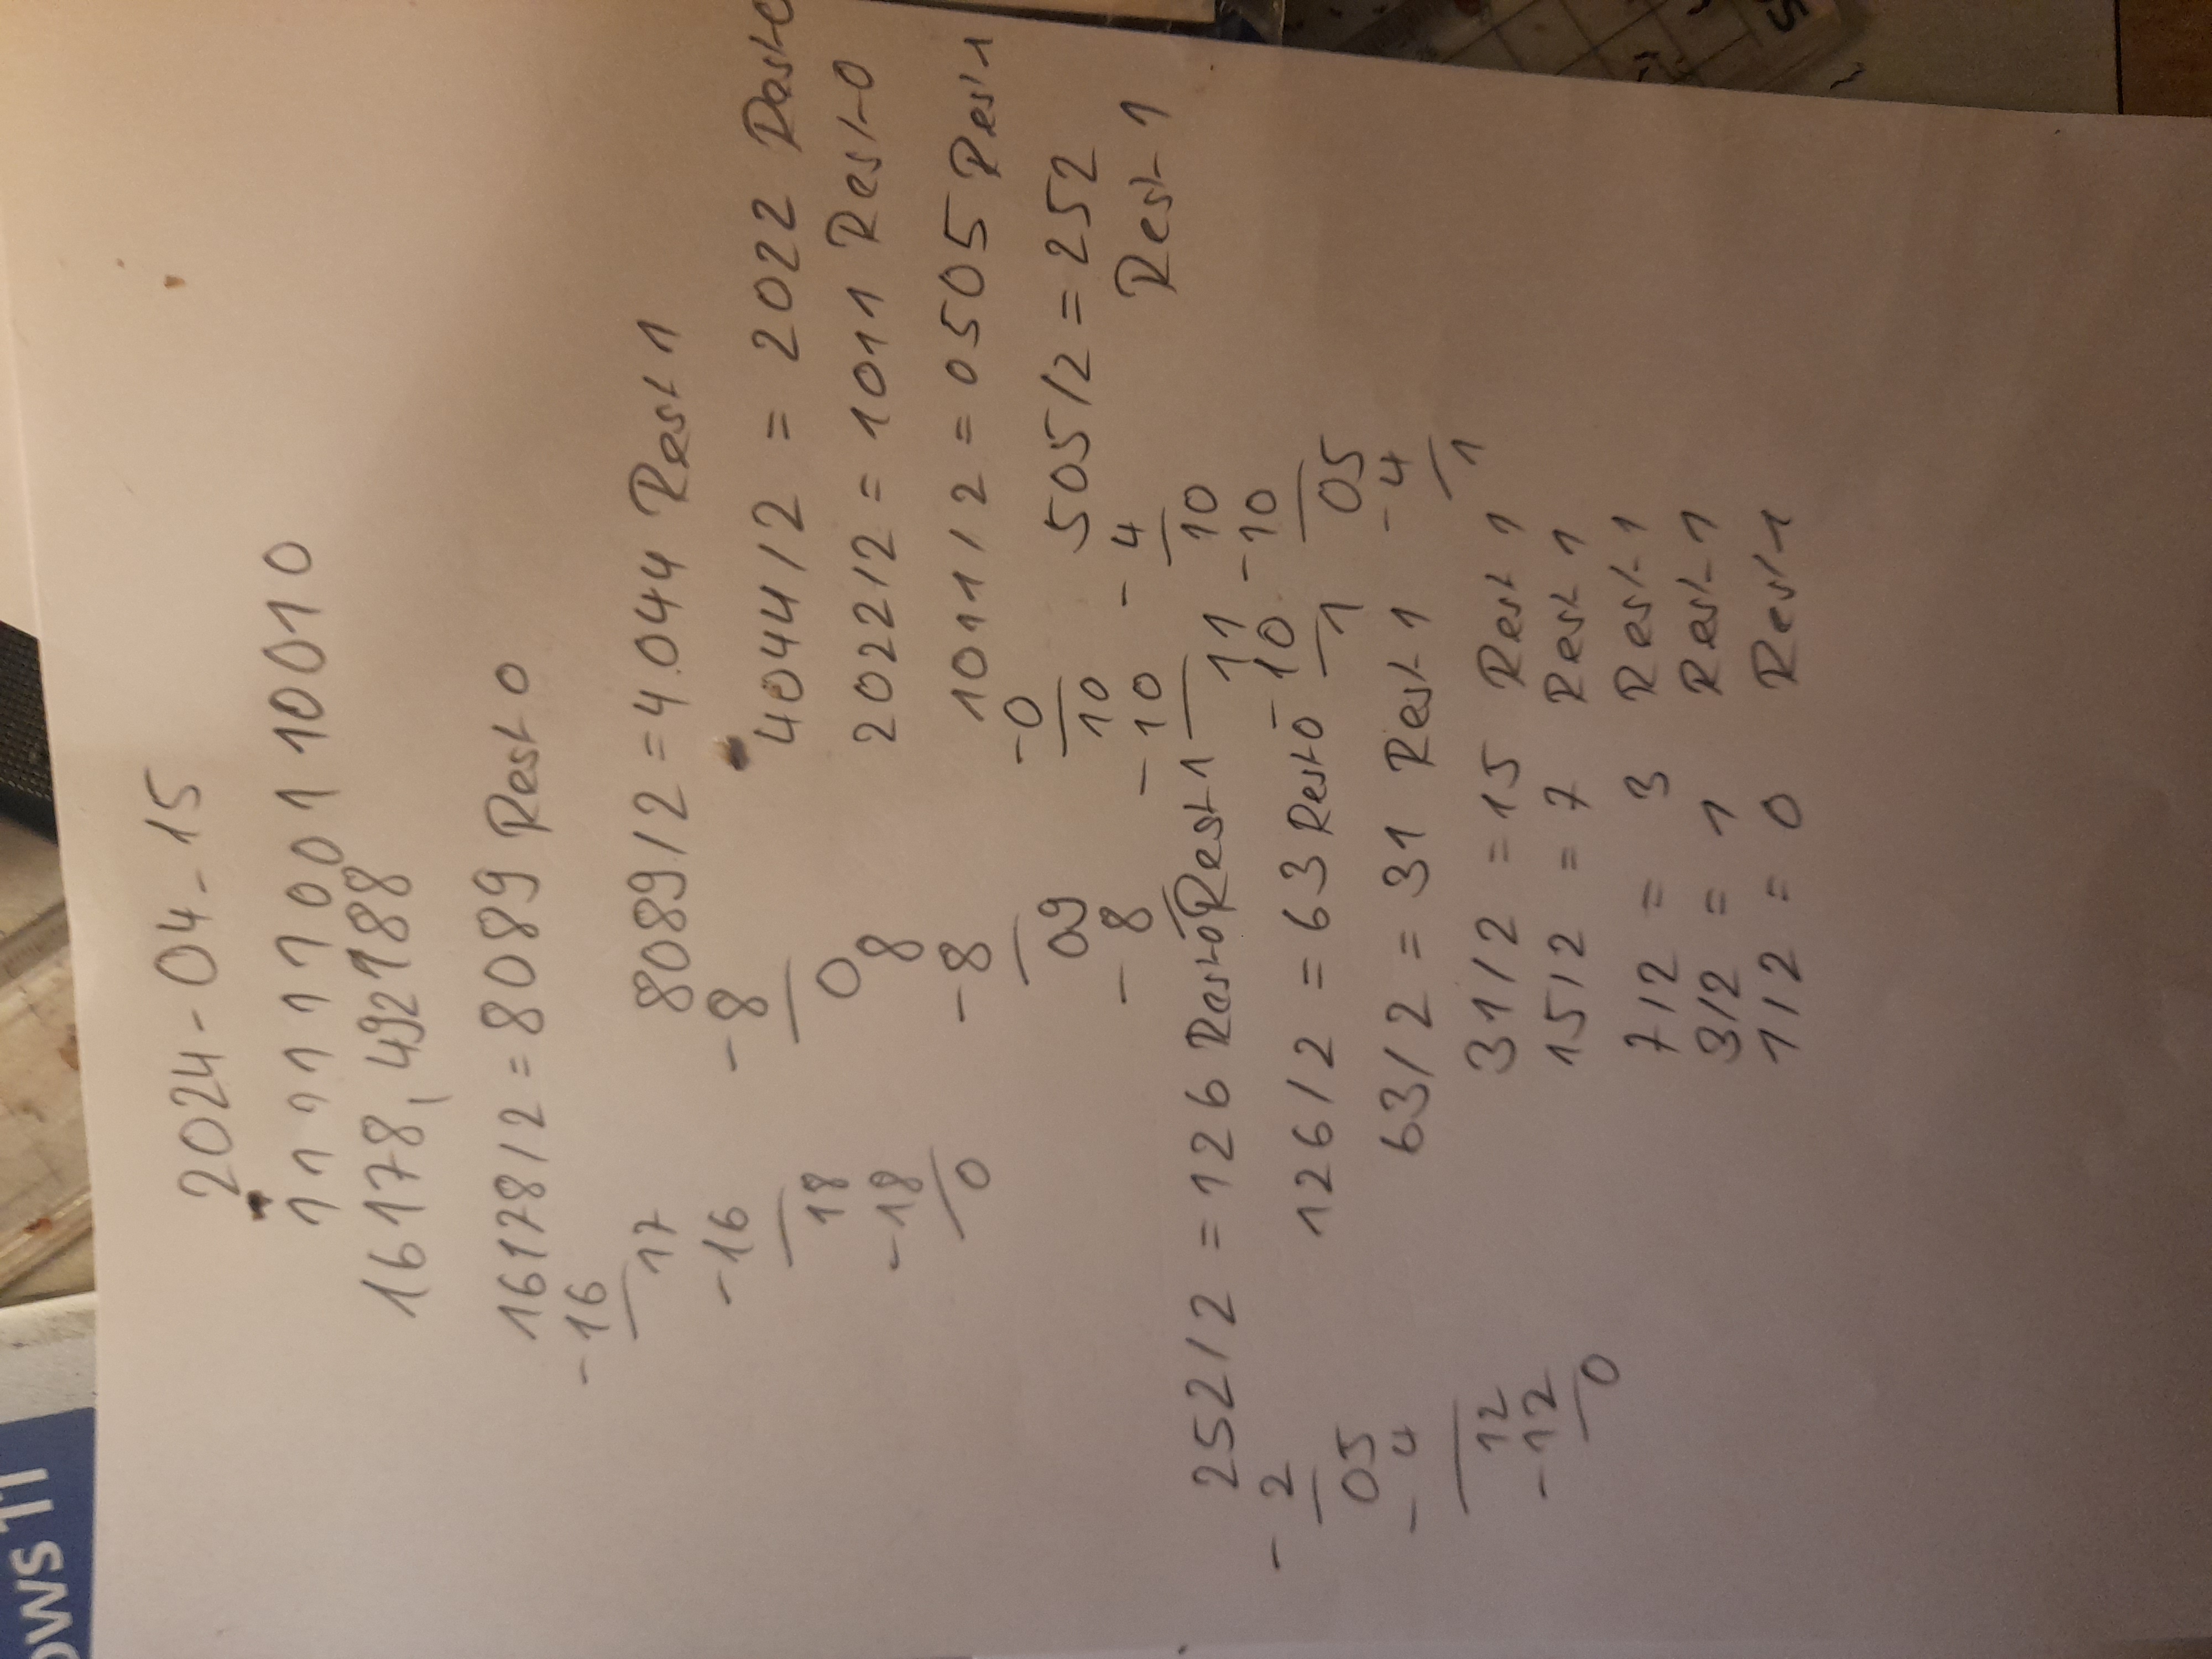 2024-04-15
11111100110010
16178,492188
16178/2 = 8089 Rest 0
-16
17
-16
18
-18
0
8089/2 = 4.044 Rest 1
-8
0
8
-8
09
-8
4044/2 = 2022 Rest
2022/2 = 1011 Rest 0
1011/2 = 0505 Rest 1
-0
10
-10
11
-10
1
505/2 = 252
Rest 1
-4
10
-10
05
-4
1
252/2 = 126 Rest 0 Rest 1
-2
05
-4
12
-12
0
126/2 = 63 Rest 0
63/2 = 31 Rest 1
31/2 = 15 Rest 1
15/2 = 7 Rest 1
7/2 = 3 Rest 1
3/2 = 1 Rest 1
1/2 = 0 Rest 1
ows 11